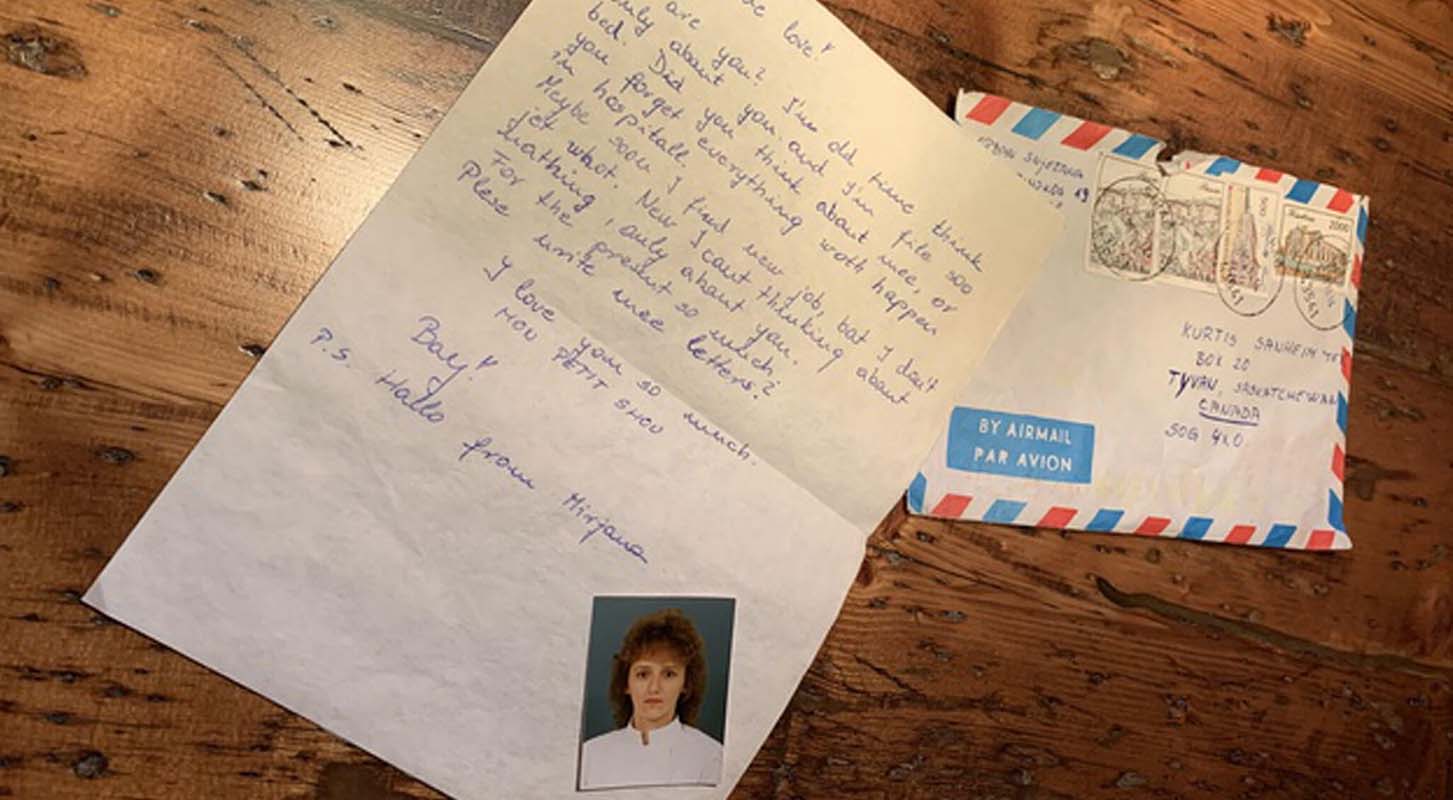 love!
are you? I'm old time think
about you and I'm file soo
bed. Did you think about mee, or
you forget everything woth happen
in hospitall
Meybe soon I find new job, bat I don't
jet whot. Now I cant thinking about
nathing, only about you.
For the present so much.
Plese write mee letters?
I love you so much.
MON PETIT SHOU
Bay!
P.S. Hallo from Mirjana
SNJEZANA
19
2000
KURTIS SANHEIM
BOX 20
TYVAN, SASKATCHEWAN
CANADA
SOG 4X0
BY AIRMAIL
PAR AVION